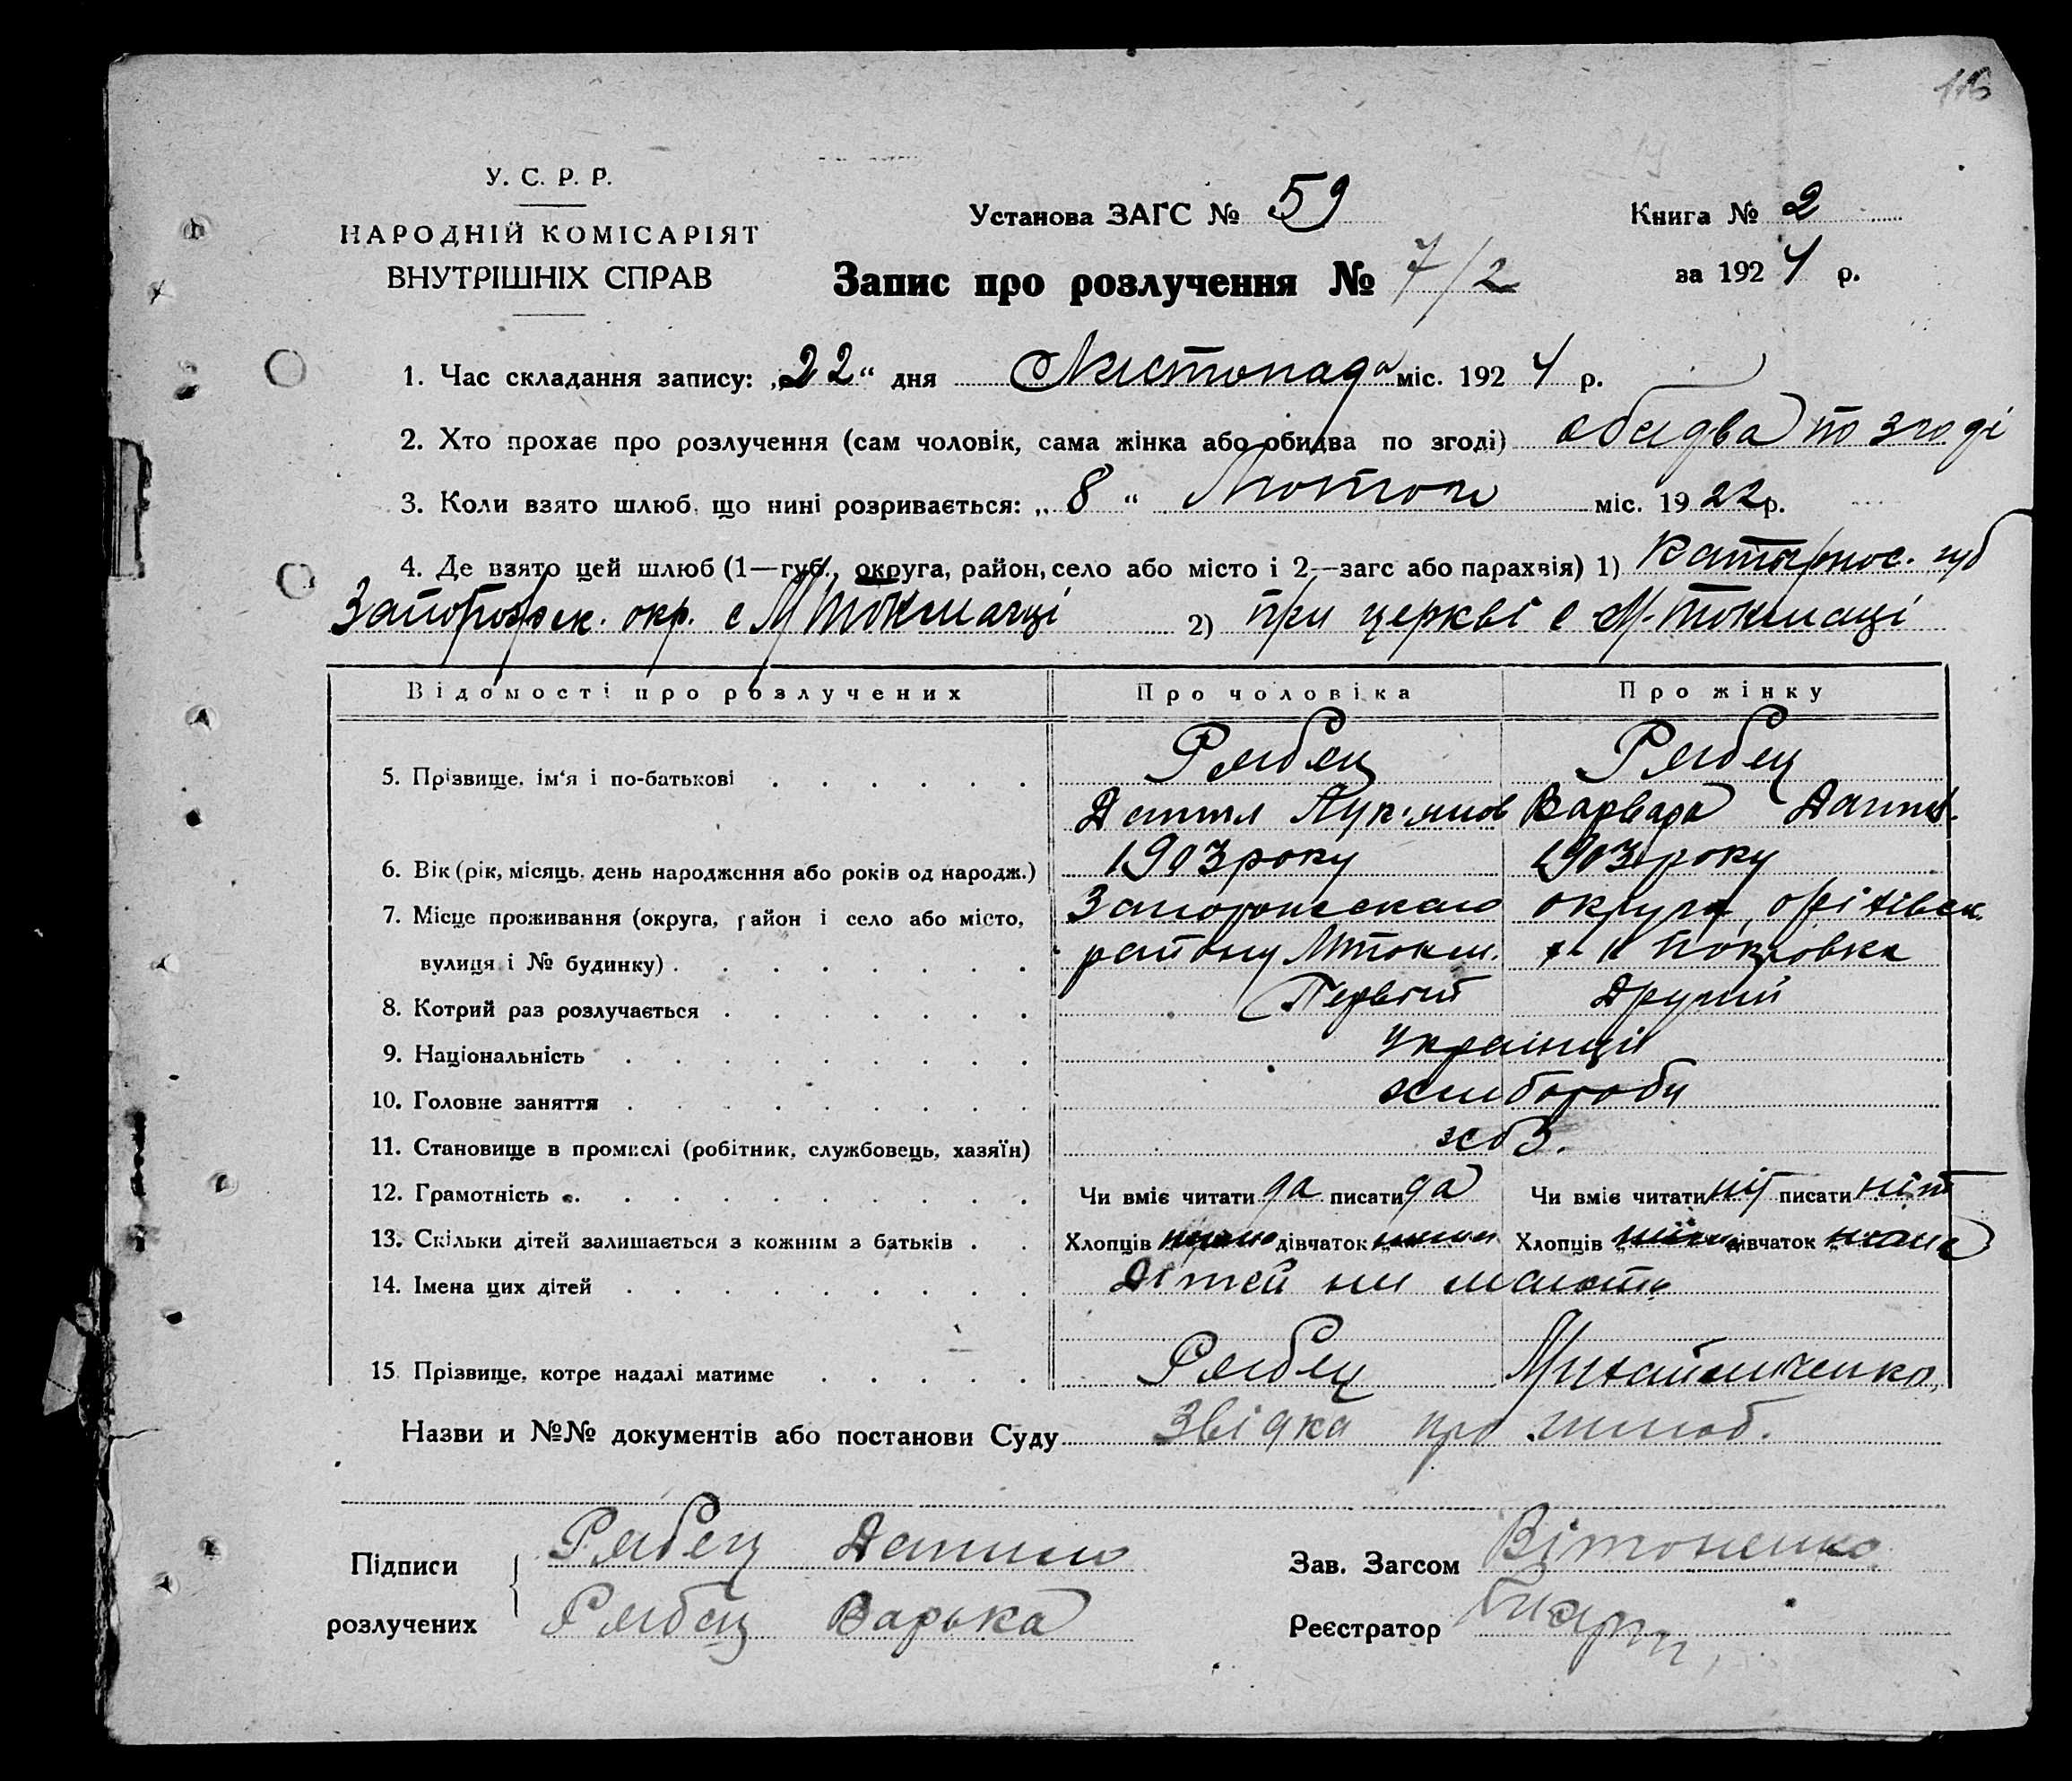 116
У. С. Р. Р.
НАРОДНІЙ КОМІСАРІЯТ
ВНУТРІШНІХ СПРАВ
Установа ЗАГС № 59
Книга № 2
Запис про розлучення № 7/2
за 1924 р.
1. Час складання запису: „22“ дня Листопада міс. 1924 р.
2. Хто прохає про розлучення (сам чоловік, сама жінка або обидва по згоді) обидва по згоді
3. Коли взято шлюб, що нині розривається: „8“ Лютого міс. 1922 р.
4. Де взято цей шлюб (1—губ., округа, район, село або місто і 2—загс або парахвія) 1) Катеринос. губ
Запорожск. окр. с М Токмачці 2) при церкві с М. Токмаці
Відомості про розлучених Про чоловіка Про жінку
5. Прізвище, ім'я і по-батькові Рябец Рябец
Данило Лук'янов Варвара Данил.
6. Вік (рік, місяць, день народження або років од народж.) 1903 року 1903 року
7. Місце проживання (округа, район і село або місто, Запорожскаго округа, оріхівск.
вулиця і № будинку) району М Токм. Покровка
8. Котрий раз розлучається Первий Другий
9. Національність Українці
10. Головне заняття хлибороби
11. Становище в промислі (робітник, службовець, хазяїн)
12. Грамотність Чи вміє читати да писати да Чи вміє читати ніт писати ніт
13. Скільки дітей залишається з кожним з батьків Хлопців дівчаток Хлопців дівчаток
14. Імена цих дітей Дітей ни мають
15. Прізвище, котре надалі матиме Рябец Михайличенко
Назви и №№ документів або постанови Суду Звідка про шлюб.
Підписи Рябец Данило
розлучених Рябец Варька
Зав. Загсом
Реєстратор